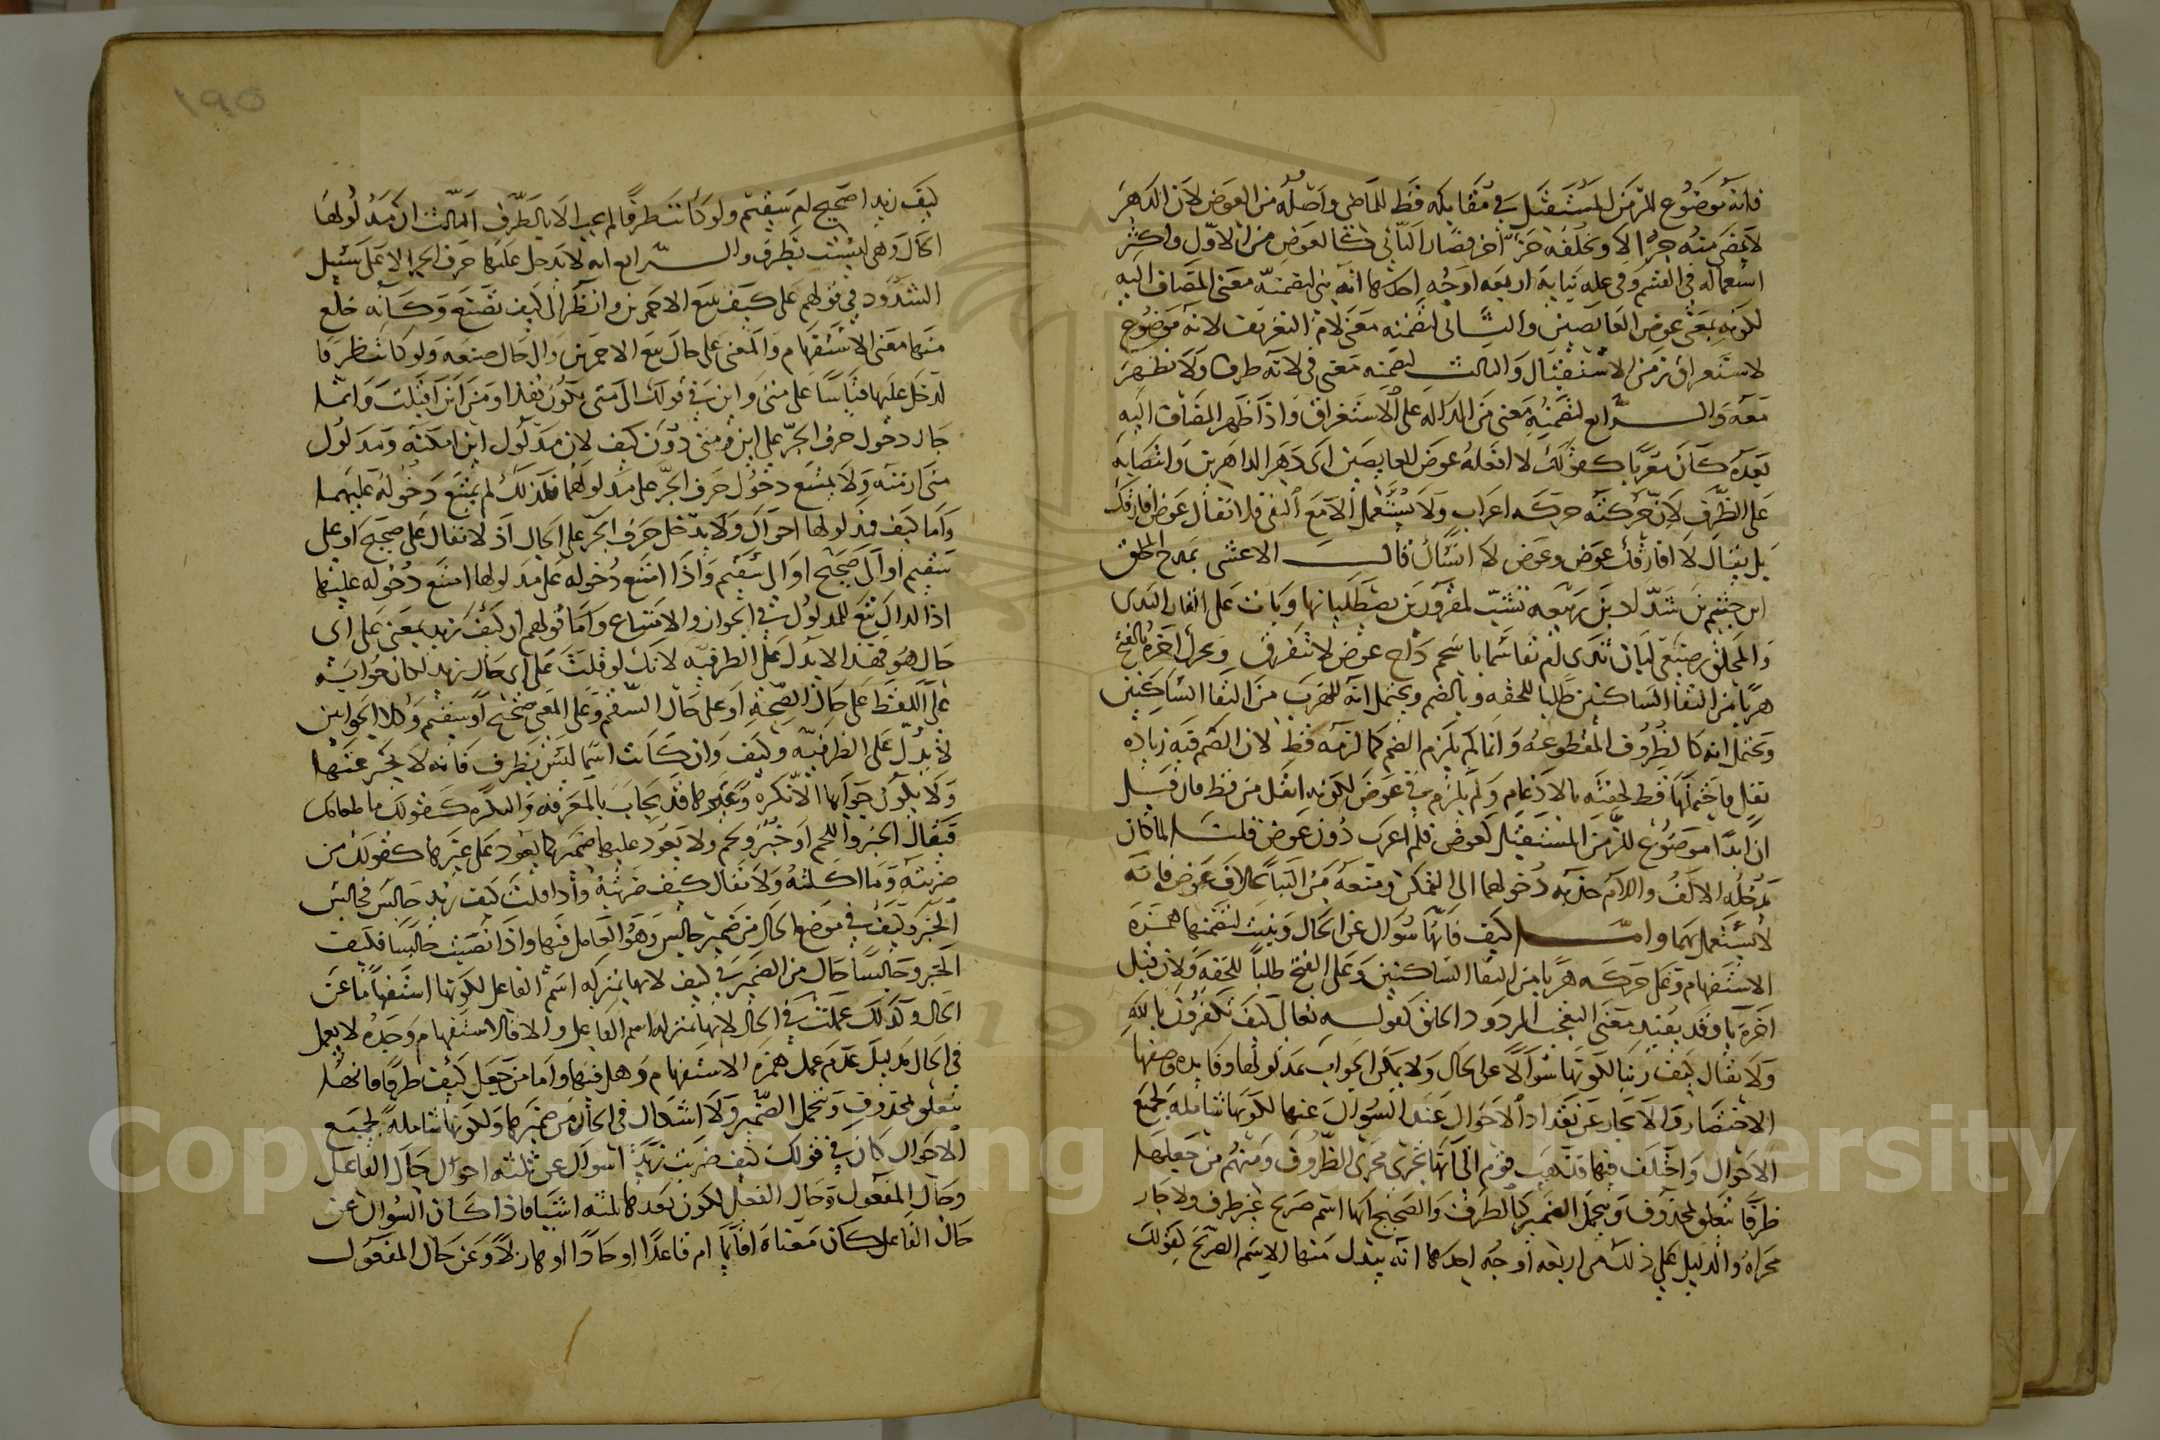 فانه موضوع للزمن المستقبل في مقابلة قط للماضي واصله من العوض لان الدهر
لا يمضي منه جزء الا ويخلفه جزء آخر فصار الثاني كالعوض من الاول واكثر
استعماله في القسم وفي علة بنايه اربعة اوجه احدها انه بني لتضمنه معنى المضاف اليه
لكونه بمعنى عوض العايضين والثاني لتضمنه معنى لام التعريف لانه موضوع
لاستغراق زمن الاستقبال والثالث لتضمنه معنى في لانه ظرف ولا تظهر
معه والرابع لتضمنه معنى من الدالة على الاستغراق واذا ظهر المضاف اليه
بعده كان معربا كقولك لا افعله عوض العايضين اي دهر الداهرين وانتصابه
على الظرف لان حركته حركة اعراب ولا يستعمل الا مع النفي فلا تقال عوض افارقك
بل يقال لا افارقك عوض وعوض لا اسال قال الاعشى يمدح المحلق
ابن خنتم بن شداد بن ربيعة تشب لمقرورين يصطليانها وبات على النار الندى
والمحلق رضيعي لبان ثدي ام تقاسما باسحم داج عوض لا نتفرق ويحرك آخره بالفتح
هربا من التقا الساكنين طلبا للخفة وبالضم ويحتمل انه للهرب من التقا الساكنين
ويحتمل انه كالظروف المقطوعة وانما لم يلزم الضم كما لزمه قط لان الضم فيه زيادة
ثقل فاحتملها قط لخفته بالادغام ولم يلزم في عوض لكونه اثقل من قط فان قيل
ان ابدا موضوع للزمن المستقبل كعوض فلم اعرب دون عوض قلت لما كان
يدخله الالف واللام جذبه دخولهما الى التمكن ومنعه من البنا بخلاف عوض فانه
لا يستعمل بهما واما كيف فانها سوال عن الحال وبنيت لتضمنها همزة
الاستفهام وعلى حركة هربا من التقا الساكنين وعلى الفتح طلبا للخفة ولان قبل
آخره يا وقد يفيد معنى التعجب المردود الى الخلق كقوله تعالى كيف تكفرون بالله
ولا يقال كيف ربنا لكونها سوالا عن الحال ولا يمكن الجواب بمدلولها وفايدة وضعها
الاختصار والايجاز عن تعداد الاحوال عند السوال عنها لكونها شاملة لجميع
الاحوال واختلف فيها فذهب قوم الى انها تجري مجرى الظروف ومنهم من جعلها
ظرفا تتعلق بمحذوف وتتحمل الضمير كالظرف والصحيح انها اسم صريح غير ظرف ولا جار
مجراه والدليل على ذلك من اربعة اوجه احدها انه يبدل منها الاسم الصريح كقولك
١٩٥
كيف زيد اصحيح ام سقيم ولو كانت ظرفا لم يجب الا بالظرف الثالث ان مدلولها
الحال وهي ليست بظرف والرابع انه لا يدخل عليها حرف الجر الا على سبيل
الشذوذ في قولهم على كيف تبيع الاحمرين وانظر الى كيف تصنع وكانه خلع
منها معنى الاستفهام والمعنى على حال بيع الاحمرين والى حال صنعه ولو كانت ظرفا
لدخل عليها قياسا على متى واين في قولك الى متى يكون هذا ومن اين اقبلت وانما
جاز دخول حرف الجر على اين ومتى دون كيف لان مدلول اين امكنة ومدلول
متى ازمنة ولا يمتنع دخول حرف الجر على مدلولهما فلذلك لم يمتنع دخوله عليهما
واما كيف فمدلولها احوال ولا يدخل حرف الجر على الحال اذ لا تقال على صحيح او على
سقيم او الى صحيح او الى سقيم واذا امتنع دخوله على مدلولها امتنع دخوله عليها
اذ الدال تبع للمدلول في الجواز والامتناع واما قولهم ان كيف زيد بمعنى على اي
حال هو فهذا لا يدل على الظرفية لانك لو قلت على اي حال زيد لكان جوابه
على اللفظ على حال الصحة او على حال السقم وعلى المعنى صحيح او سقيم وكلا الجوابين
لا يدل على الظرفية وكيف وان كانت اسما ليس بظرف فانه لا يخبر عنها
ولا يكون جوابها الا نكرة وغيرها قد يجاب بالمعرفة والنكرة كقولك ما طعامك
فيقال الخبز واللحم او خبز ولحم ولا يعود عليها ضمير كما يعود على غيرها كقولك من
ضربته وما اكلته ولا تقال كيف ضربته واذا قلت كيف زيد جالس فجالس
الخبر وكيف في موضع الحال من ضمير جالس وهو العامل فيها واذا نصبت جالسا فكيف
الخبر وجالسا حال من الضمير في كيف لانها بمنزلة اسم الفاعل لكونها استفهاما عن
الحال وكذلك عملت في الحال لانها بمنزلة اسم الفاعل والا فالاستفهام وحده لا يعمل
في الحال بدليل عدم عمل همزة الاستفهام وهل فيها واما من جعل كيف ظرفا فانها
تتعلق بمحذوف وتتحمل الضمير ولا اشكال في الحال من ضميرها ولكونها شاملة لجميع
الاحوال كان في قولك كيف ضربت زيدا سوال عن ثلثة احوال حال الفاعل
وحال المفعول وحال الفعل لكون بعدها ثلثة اشيا فاذا كان السوال عن
حال الفاعل كان معناه اقايما ام قاعدا او جادا او هازلا وعن حال المفعول
Copyright © King Saud University